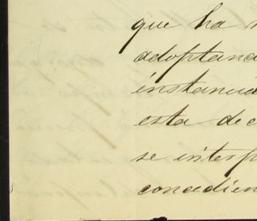 que ha
adoptan
instancia
esta de
se interp
concedien